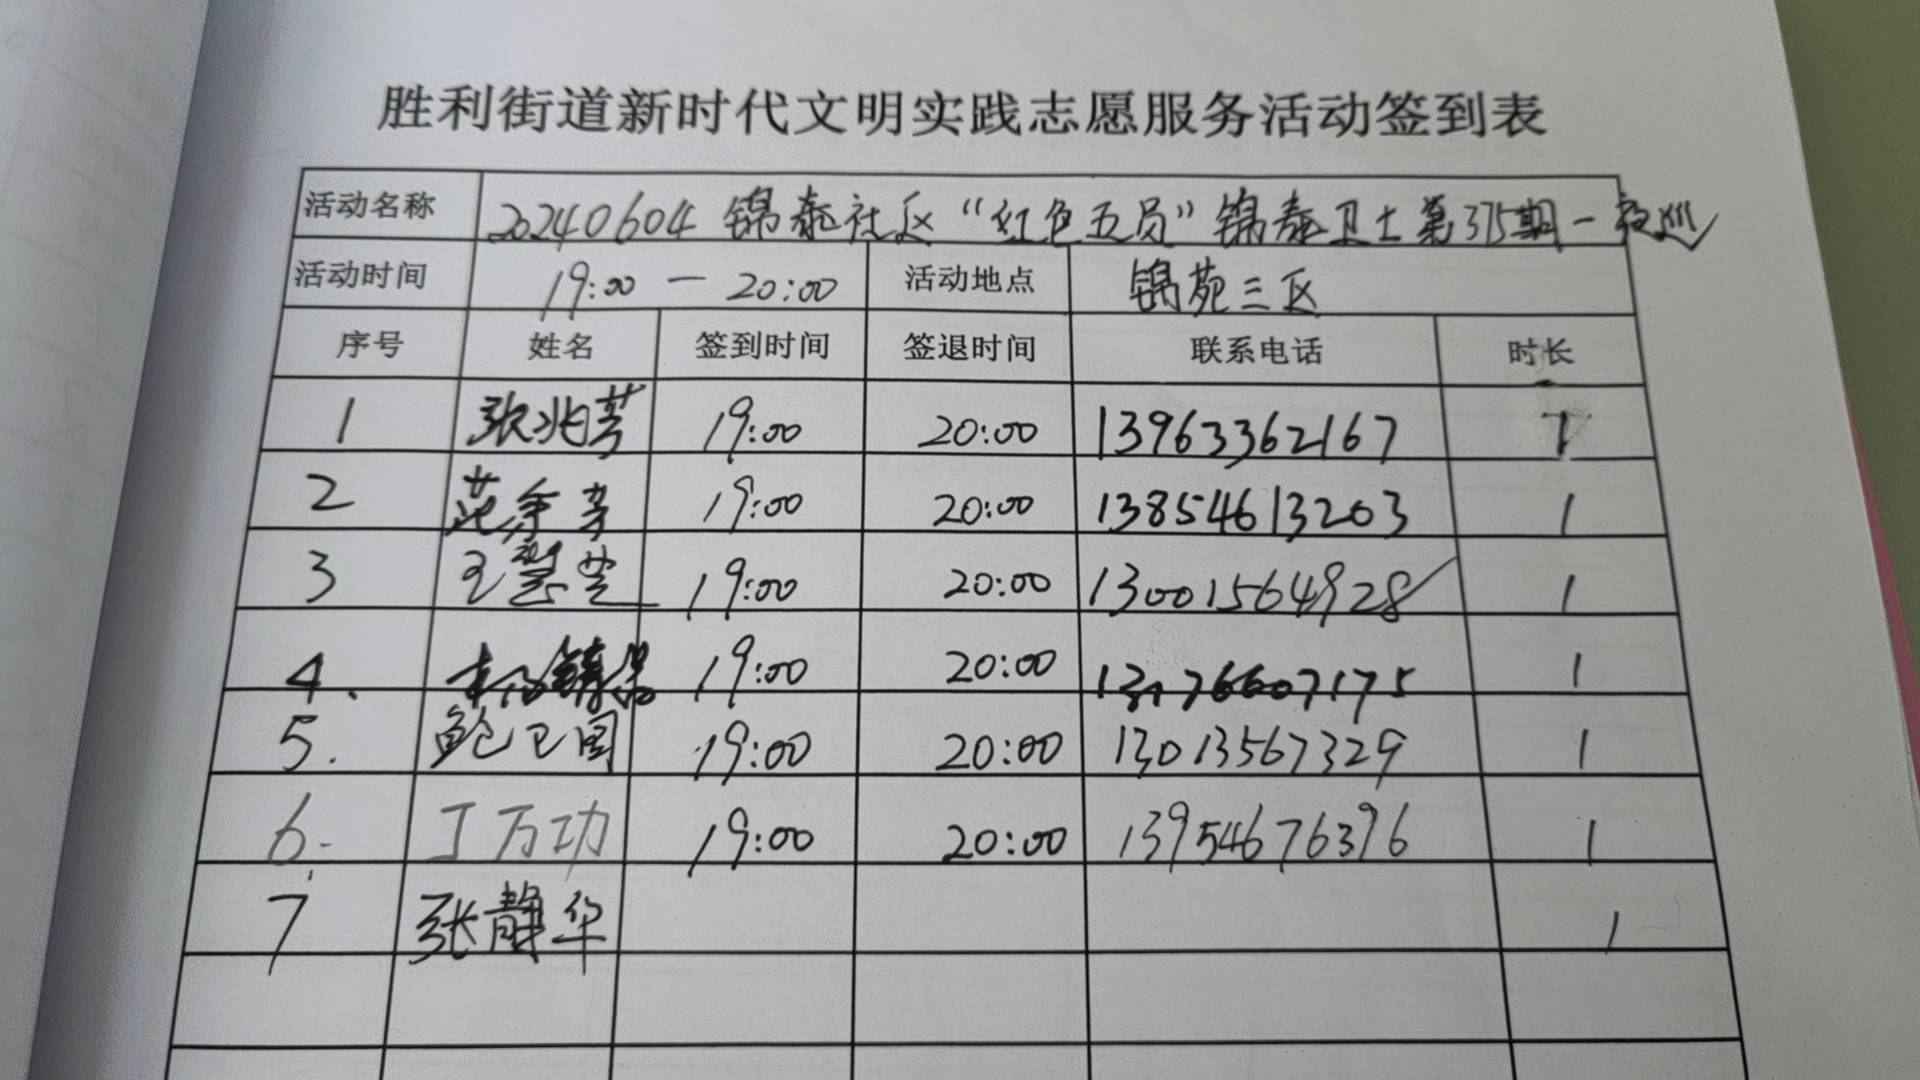 胜利街道新时代文明实践志愿服务活动签到表
活动名称 20240604 锦泰社区“红色五员”锦泰卫士第375期一夜巡
活动时间 19:00 — 20:00 活动地点 锦苑三区
序号 姓名 签到时间 签退时间 联系电话 时长
1 张兆芳 19:00 20:00 13963362167 1
2 范余芳 19:00 20:00 13854613203 1
3 王慧芝 19:00 20:00 13001564928 1
4. 19:00 20:00 1
5. 鲍卫国 19:00 20:00 13013567329 1
6. 丁万功 19:00 20:00 13954676396 1
7 张静华 1